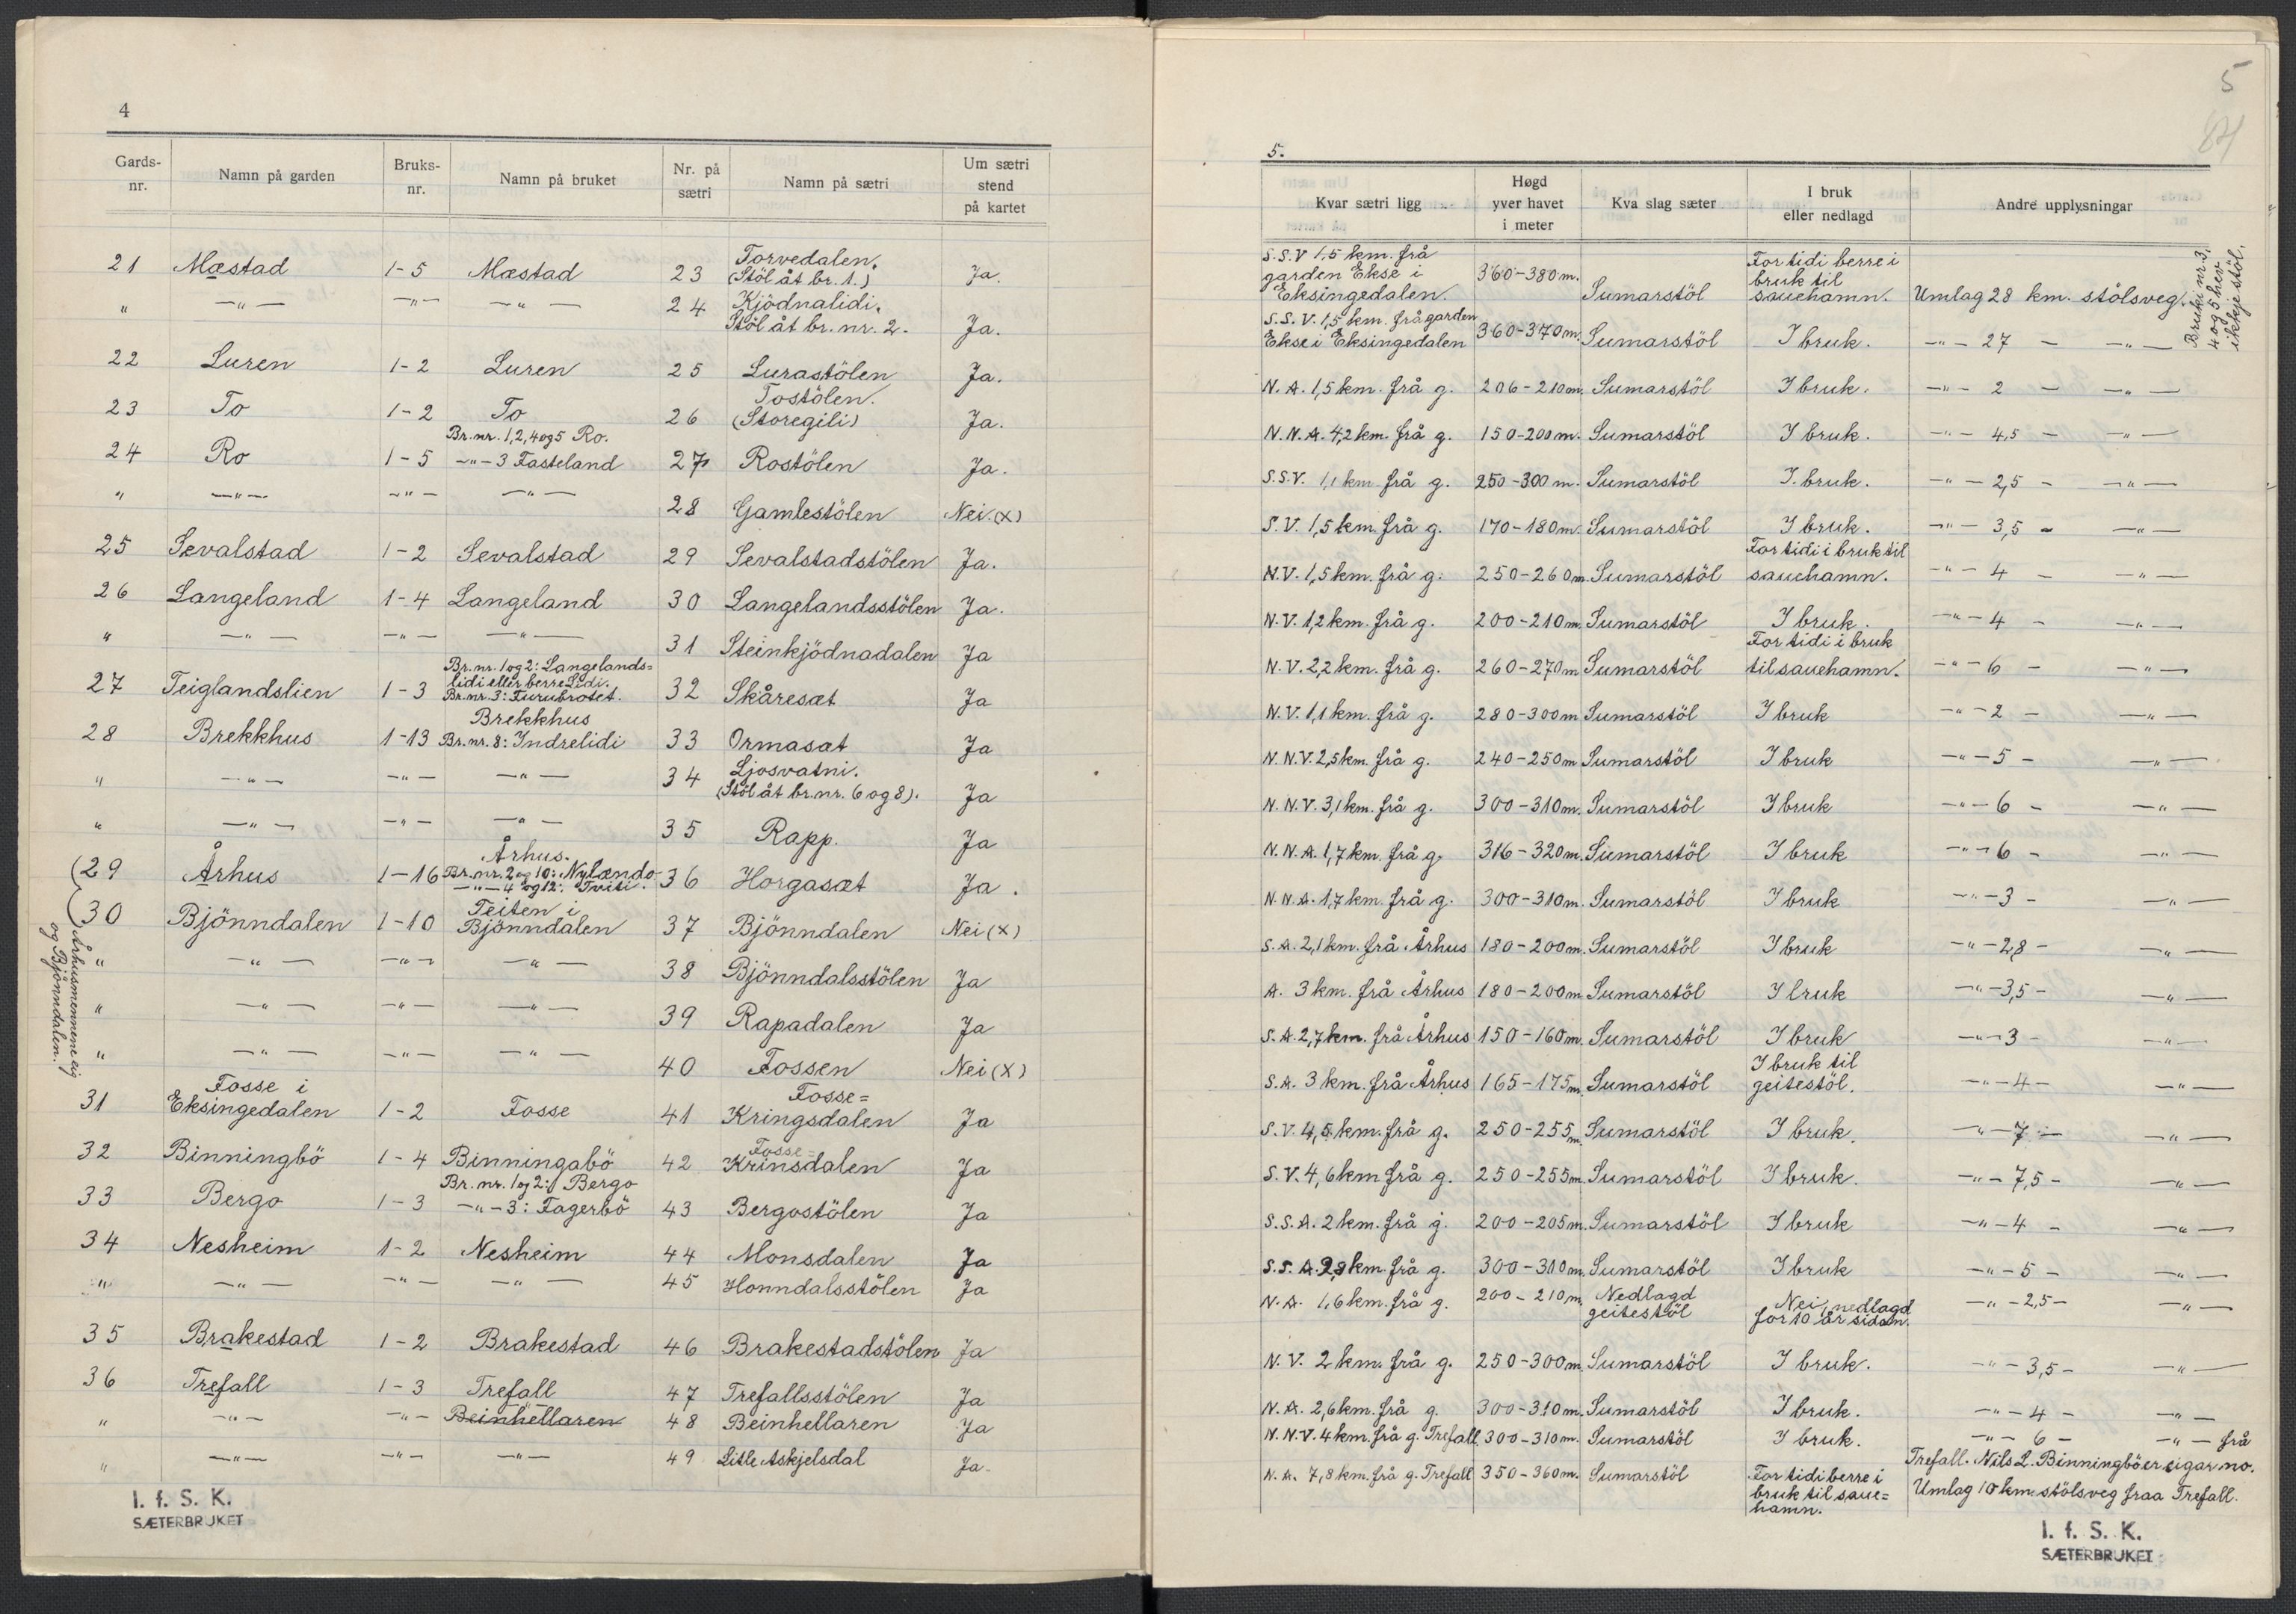 4
Gards-nr. | Namn på garden | Bruks-nr. | Namn på bruket | Nr. på sætri | Namn på sætri | Um sætri stend på kartet
21 | Mæstad | 1-5 | Mæstad | 23 | Torvedalen. (Stöl åt br. 1.) | Ja.
" | —"— | —"— | —"— | 24 | Kjödnalidi. Stöl åt br. nr. 2. | Ja.
22 | Luren | 1-2 | Luren | 25 | Lurastölen | Ja.
23 | To | 1-2 | To | 26 | Tostölen. (Storegili) | Ja.
24 | Ro | 1-5 | Br. nr. 1,2,4 og 5 Ro. —"— 3 Fasteland | 27 | Rostölen | Ja.
" | —"— | —"— | —"— | 28 | Gamlestölen | Nei. (X)
25 | Sevalstad | 1-2 | Sevalstad | 29 | Sevalstadstölen | Ja.
26 | Langeland | 1-4 | Langeland | 30 | Langelandsstölen | Ja.
" | —"— | —"— | —"— | 31 | Steinkjödnadalen | Ja
27 | Teiglandslien | 1-3 | Br. nr. 1 og 2: Langelands= lidi eller berre Lidi. Br. nr. 3: Furubrotet. | 32 | Skåresæt | Ja
28 | Brekkhus | 1-13 | Brekkhus Br. nr. 8: Indrelidi | 33 | Ormasæt | Ja
" | —"— | —"— | —"— | 34 | Ljosvatni. (Stöl åt br. nr. 6 og 8). | Ja
" | —"— | —"— | —"— | 35 | Rapp. | Ja
(29 | Århus | 1-16 | Århus. Br. nr. 2 og 10: Nylændo —"— 4 og 12: Tviti. | 36 | Horgasæt | Ja.
30 | Bjönndalen | 1-10 | Teiten i Bjönndalen | 37 | Bjönndalen | Nei (X)
" | —"— | —"— | —"— | 38 | Bjönndalsstölen | Ja
" | —"— | —"— | —"— | 39 | Rapadalen | Ja
" | —"— | —"— | —"— | 40 | Fossen | Nei (X)
Århusmennene eig
og Bjönndalen.
31 | Fosse i Eksingedalen | 1-2 | Fosse | 41 | Fosse= Kringsdalen | Ja
32 | Binningbö | 1-4 | Binningabö | 42 | Fosse= Krinsdalen | Ja
33 | Bergo | 1-3 | Br. nr. 1 og 2: Bergo —"— 3: Fagerbö | 43 | Bergostölen | Ja
34 | Nesheim | 1-2 | Nesheim | 44 | Monsdalen | Ja
" | —"— | —"— | —"— | 45 | Honndalsstölen | Ja
35 | Brakestad | 1-2 | Brakestad | 46 | Brakestadstölen | Ja
36 | Trefall | 1-3 | Trefall | 47 | Trefallsstölen | Ja
" | —"— | —"— | Beinhellaren | 48 | Beinhellaren | Ja
" | —"— | —"— | —"— | 49 | Litle Askjelsdal | Ja.
I. f. S. K.
SÆTERBRUKET
5
5.
Kvar sætri ligg | Høgd yver havet i meter | Kva slag sæter | I bruk eller nedlagd | Andre upplysningar
S.S.V 1,5 km. frå garden Ekse i Eksingedalen. | 360-380 m. | Sumarstöl | For tidi berre i bruk til sauehamn. | Umlag 28 km. stölsveg.
Bruki nr 3,
4 og 5 hev
ikkje stöl.
S.S.V. 1,5 km. frå garden Ekse i Eksingedalen | 360-370 m. | Sumarstöl | I bruk. | —"— 27 — —"—
N.A. 1,5 km. frå g. | 206-210 m. | Sumarstöl | I bruk. | —"— 2 — —"—
N.N.A. 4,2 km. frå g. | 150-200 m. | Sumarstöl | I bruk. | —"— 4,5 — —"—
S.S.V. 1,1 km. frå g. | 250-300 m. | Sumarstöl | I. bruk. | —"— 2,5 — —"—
S.V. 1,5 km. frå g. | 170-180 m. | Sumarstöl | I bruk. | —"— 3,5 — —"—
N.V. 1,5 km. frå g. | 250-260 m. | Sumarstöl | For tidi i bruk til sauehamn. | —"— 4 — —"—
N.V. 1,2 km. frå g. | 200-210 m. | Sumarstöl | I bruk. | —"— 4 — —"—
N.V. 2,2 km. frå g. | 260-270 m | Sumarstöl | For tidi i bruk til sauehamn. | —"— 6 — —"—
N.V. 1,1 km. frå g. | 280-300 m | Sumarstöl | I bruk | —"— 2 — —"—
N.N.V. 2,5 km. frå g. | 240-250 m | Sumarstöl | I bruk | —"— 5 — —"—
N.N.V. 3,1 km. frå g. | 300-310 m. | Sumarstöl | I bruk | —"— 6 — —"—
N.N.A. 1,7 km. frå g. | 316-320 m. | Sumarstöl | I bruk | —"— 6 — —"—
N.N.A. 1,7 km. frå g. | 300-310 m. | Sumarstöl | I bruk | —"— 3 — —"—
S.A. 2,1 km. frå Århus | 180-200 m. | Sumarstöl | I bruk | —"— 2,8 — —"—
A. 3 km. frå Århus | 180-200 m | Sumarstöl | I bruk | —"— 3,5 — —"—
S.A. 2,7 km. frå Århus | 150-160 m. | Sumarstöl | I bruk | —"— 3 — —"—
S.A. 3 km. frå Århus | 165-175 m. | Sumarstöl | I bruk til geitestöl. | —"— 4 — —"—
S.V. 4,5 km. frå g. | 250-255 m. | Sumarstöl | I bruk. | —"— 7 — —"—
S.V. 4,6 km frå g. | 250-255 m. | Sumarstöl | I bruk. | —"— 7,5 — —"—
S.S.A. 2 km. frå g. | 200-205 m. | Sumarstöl | I bruk | —"— 4 — —"—
S.S.A. 2,8 km. frå g. | 300-310 m. | Sumarstöl | I bruk | —"— 5 — —"—
N.A. 1,6 km. frå g. | 200-210 m. | Nedlagd geitestöl | Nei, nedlagd for 10 år sidan. | —"— 2,5 — —"—
N.V. 2 km. frå g. | 250-300 m. | Sumarstöl | I bruk. | —"— 3,5 — —"—
N.A. 2,6 km. frå g. | 300-310 m. | Sumarstöl | I bruk. | —"— 4 — —"—
N.N.V. 4 km. frå g. Trefall | 300-310 m. | Sumarstöl | I bruk. | —"— 6 — —"— frå Trefall. Nils L. Binningbö er eigar no.
N.A. 7,8 km. frå g. Trefall | 350-360 m. | Sumarstöl | For tidi berre i bruk til saue= hamn. | Umlag 10 km. stölsveg fraa Trefall.
I. f. S. K.
SÆTERBRUKET